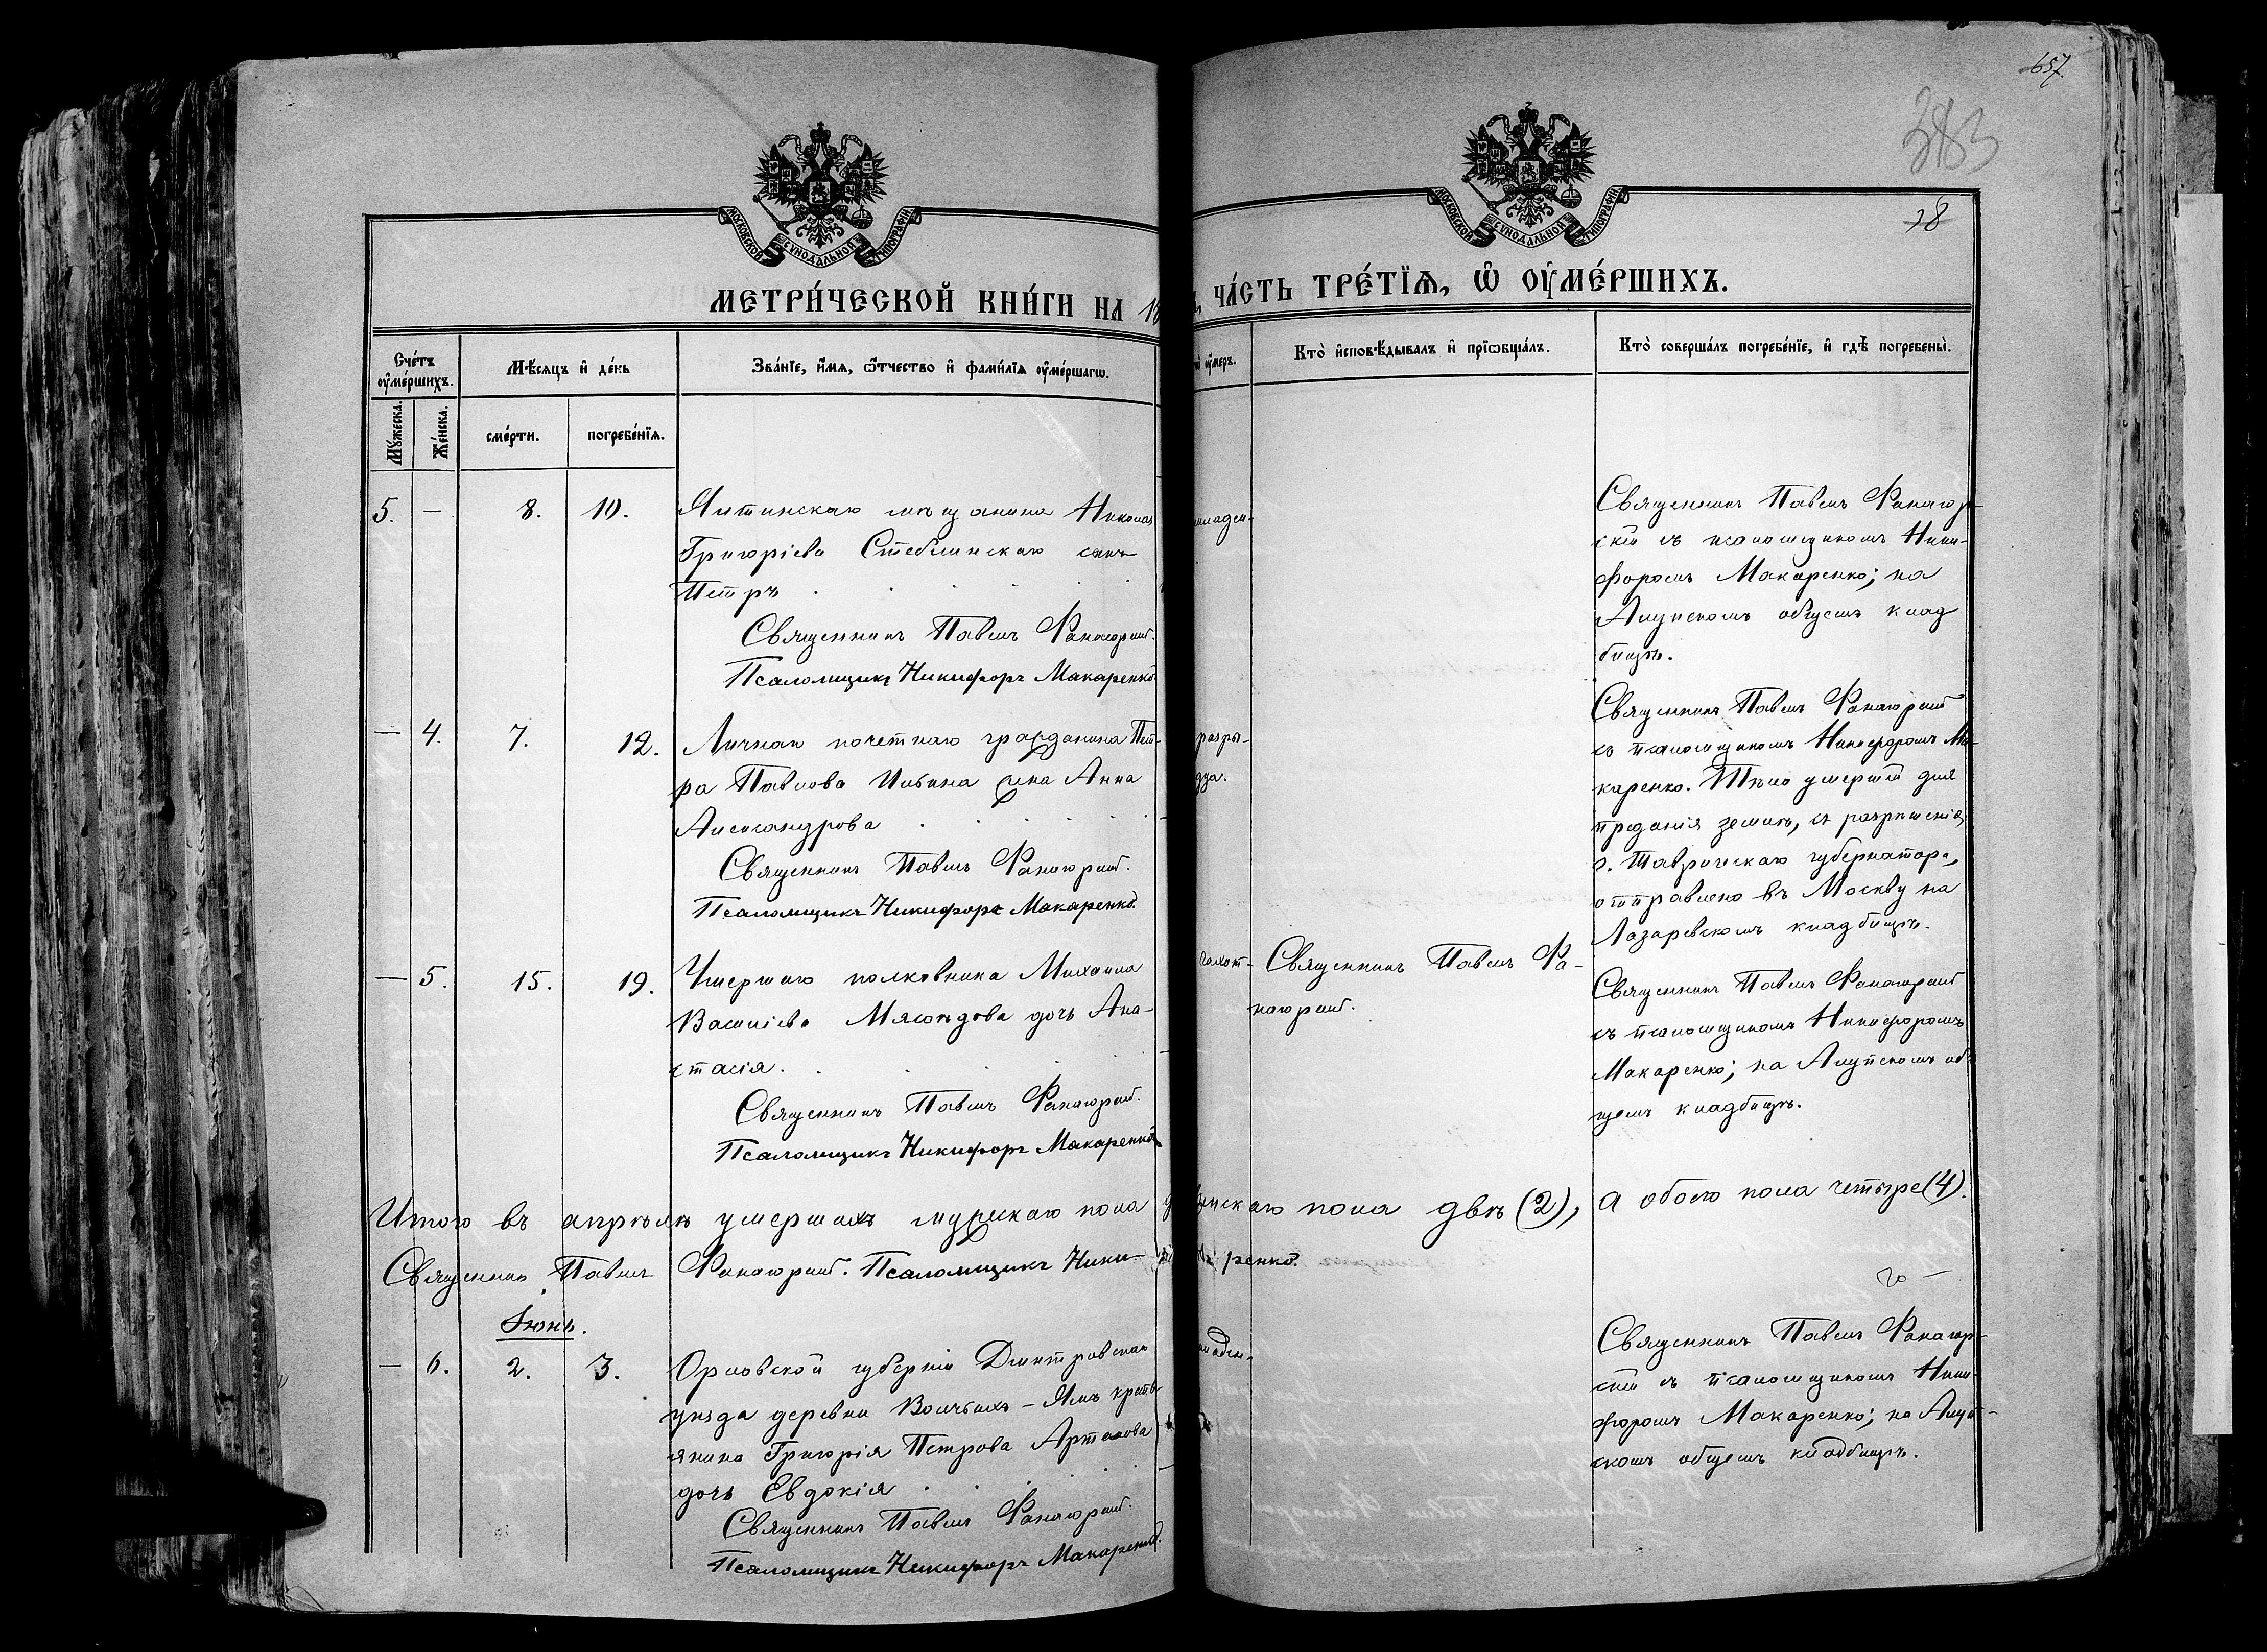 657.
383
38
МОСКОВСКОЙ СѴНОДАЛЬНОЙ ТИПОГРАФІИ
МОСКОВСКОЙ СѴНОДАЛЬНОЙ ТИПОГРАФІИ
МЕТРИ́ЧЕСКОЙ КНИ́ГИ НА 18
ЧА́СТЬ ТРЕ́ТІѦ, Ѡ҆ ОУ҆МЕ́РШИХЪ.
Сче́тъ оу҆ме́ршихъ.
Мꙋ́жеска.
Же́нска.
Мѣ́сѧцъ и҆ де́нь
сме́рти.
погребе́нїѧ.
Зва́нїе, и҆́мѧ, ѻ҆́тчество и҆ фами́лїѧ оу҆ме́ршагѡ.
оу҆́меръ.
Кто̀ и҆сповѣ́дывалъ и҆ прїѡбща́лъ.
Кто̀ соверша́лъ погребе́нїе, и҆ гдѣ̀ погребены̀.
5. — 8. 10.
Ялтинскаго мѣщанина Николая
Григоріева Стеблинскаго сынъ
Петръ
Священникъ Павелъ Фанагорскій.
Псаломщикъ Никифоръ Макаренко.
младен-
Священникъ Павелъ Фанагор-
скій съ псаломщикомъ Ники-
форомъ Макаренко; на
Алупскомъ общемъ клад
бищѣ.
— 4. 7. 12.
Личнаго почетнаго гражданина Пет-
ра Павлова Ильина жена Анна
Александрова
Священникъ Павелъ Фанагорскій.
Псаломщикъ Никифоръ Макаренко.
разры-
Священникъ Павелъ Фанагорскій
съ псаломщикомъ Никифоромъ Ма-
каренко. Тѣло умершей для
преданія землѣ, съ разрѣшенія
г. Таврическаго губернатора,
отправлено въ Москву на
Лазаревскомъ кладбищѣ.
— 5. 15. 19.
Умершаго полковника Михаила
Васильева Мясоѣдова дочь Ана-
стасія.
Священникъ Павелъ Фанагорскій.
Псаломщикъ Никифоръ Макаренко.
чахот-
Священникъ Павелъ Фа-
нагорскій.
Священникъ Павелъ Фанагорскій
съ псаломщикомъ Никифоромъ
Макаренко; на Алупскомъ об-
щемъ кладбищѣ.
Итого въ апрѣлѣ умершихъ мужескаго пола
женскаго пола двѣ (2), а обоего пола четыре (4).
Священникъ Павелъ Фанагорскій. Псаломщикъ Ники-
ренко.
Іюнь.
— 6. 2. 3.
Орловской губерніи Дмитровскаго
уѣзда деревни Волчьихъ-Ямъ кресть
янина Григорія Петрова Артамова
дочь Евдокія
Священникъ Павелъ Фанагорскій.
Псаломщикъ Никифоръ Макаренко.
младен-
Священникъ Павелъ Фанагор-
скій съ псаломщикомъ Ники-
форомъ Макаренко; на Алуп-
скомъ общемъ кладбищѣ.